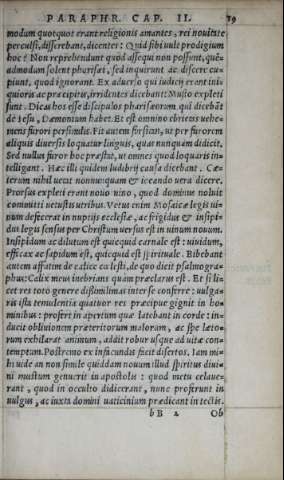 PARAPHR. CAP. II. 19
modum quotquot erant religionis amantes, rei nouitate
perculsi, disserebant, dicentes: Quid sibi uult prodigium
hoc? Non reprehendunt quod assequi non possunt, quẽ
admodum solent pharisæi, sed inquirunt ac discere cu
piunt, quod ignorant. Ex aduerso qui iudicij erant ini
quioris ac præcipitis, irridentes dicebant: Musto expleti
sunt. Dicas hos esse discipulos pharisæorum qui dicebãt
de Iesu, Dæmonium habet. Et est omnino ebrietas uehe
mens furori persimilis. Fit autem forsitan, ut per furorem
aliquis diuersis loquatur linguis, quas nunquam didicit.
Sed nullus furor hoc præstat, ut omnes quod loquaris in=
telligant. Hæc illi quidem ludibrij causa dicebant. Cæ=
terum nihil uetat nonnunquam & iocando uera dicere.
Prorsus expleti erant nouo uino, quod dominus noluit
committi uetustis utribus. Vetus enim Mosaicæ legis ui=
num defecerat in nuptijs ecclesiæ, ac frigidus & insipi=
dus legis sensus per Christum uersus est in uinum nouum.
Insipidum ac dilutum est quicquid carnale est: uiuidum,
efficax ac sapidum est, quicquid est spirituale. Bibebant
autem affatim de calice cælesti, de quo dicit psalmogra=
phus: Calix meus inebrians quàm præclarus est. Et si li=
cet res toto genere dissimilimas inter se conferre: uulga=
ris ista temulentia quatuor res præcipue gignit in ho=
minibus: profert in apertum quæ latebant in corde: in=
ducit obliuionem præteritorum malorum, ac spe læto=
rum exhilarat animum, addit robur usque ad uitæ con=
temptum. Postremo ex infacundis facit disertos. Iam mi=
hi uide an non simile quiddam nouum illud spiritus diui=
ni mustum genuerit in apostolis: quod metu celaue=
rant, quod in occulto didicerant, nunc proferunt in
uulgus, ac iuxta domini uaticinium prædicant in tectis.
bB 2 Ob